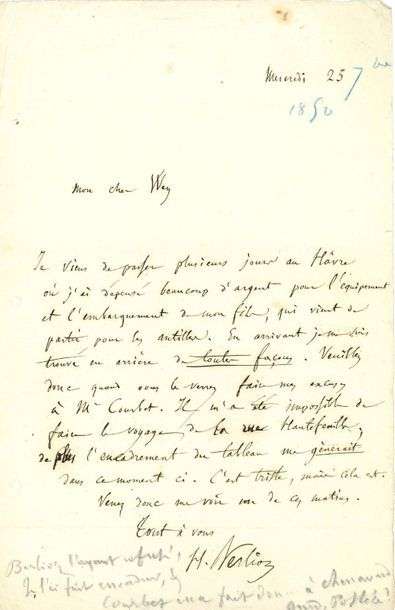 Mercredi 25 7bre
1850
Mon cher Wey
Je viens de passer plusieurs jours au Hâvre
où j'ai dépensé beaucoup d'argent pour l'équipement
et l'embarquement de mon fils; qui vient de
partir pour les antilles. En arrivant je me suis
trouvé en arrière de toutes façons. Veuillez
donc quand vous le verrez faire mes excuses
à Mr Courbet. Il m'a été impossible de
faire le voyage de la rue Hautefeuille,
de plus l'encadrement du tableau me gênerait
dans ce moment ci. C'est triste, mais cela est.
Venez donc me voir un de ces matins.
Tout à vous
H. Berlioz
Berlioz l'ayant refusé,
Je l'ai fait encadrer, &
Courbet en a fait don à